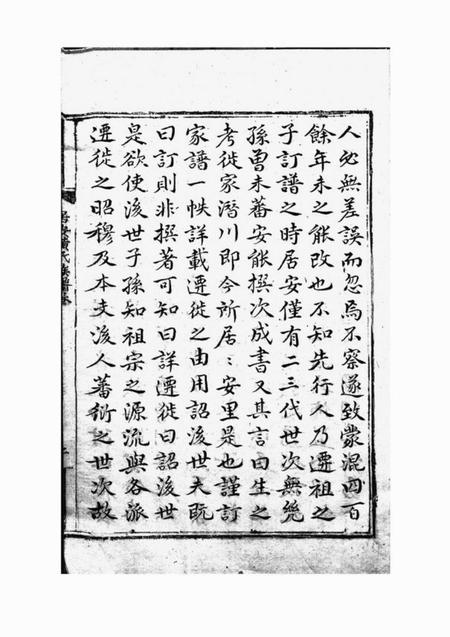 人必無差誤而忽焉不察遂致蒙混四百
餘年未之能改也不知先行人乃遷祖之
子訂譜之時居安僅有二三代世次無幾
孫曾未蕃安能撰次成書又其言曰生之
考徙家潛川即今所居〻安里是也謹訂
家譜一帙詳載遷徙之由用詔後世夫既
曰訂則非撰著可知曰詳遷徙曰詔後世
是欲使後世子孫知祖宗之源流與各派
遷徙之昭穆及本支後人蕃衍之世次故
居安黃氏族譜卷